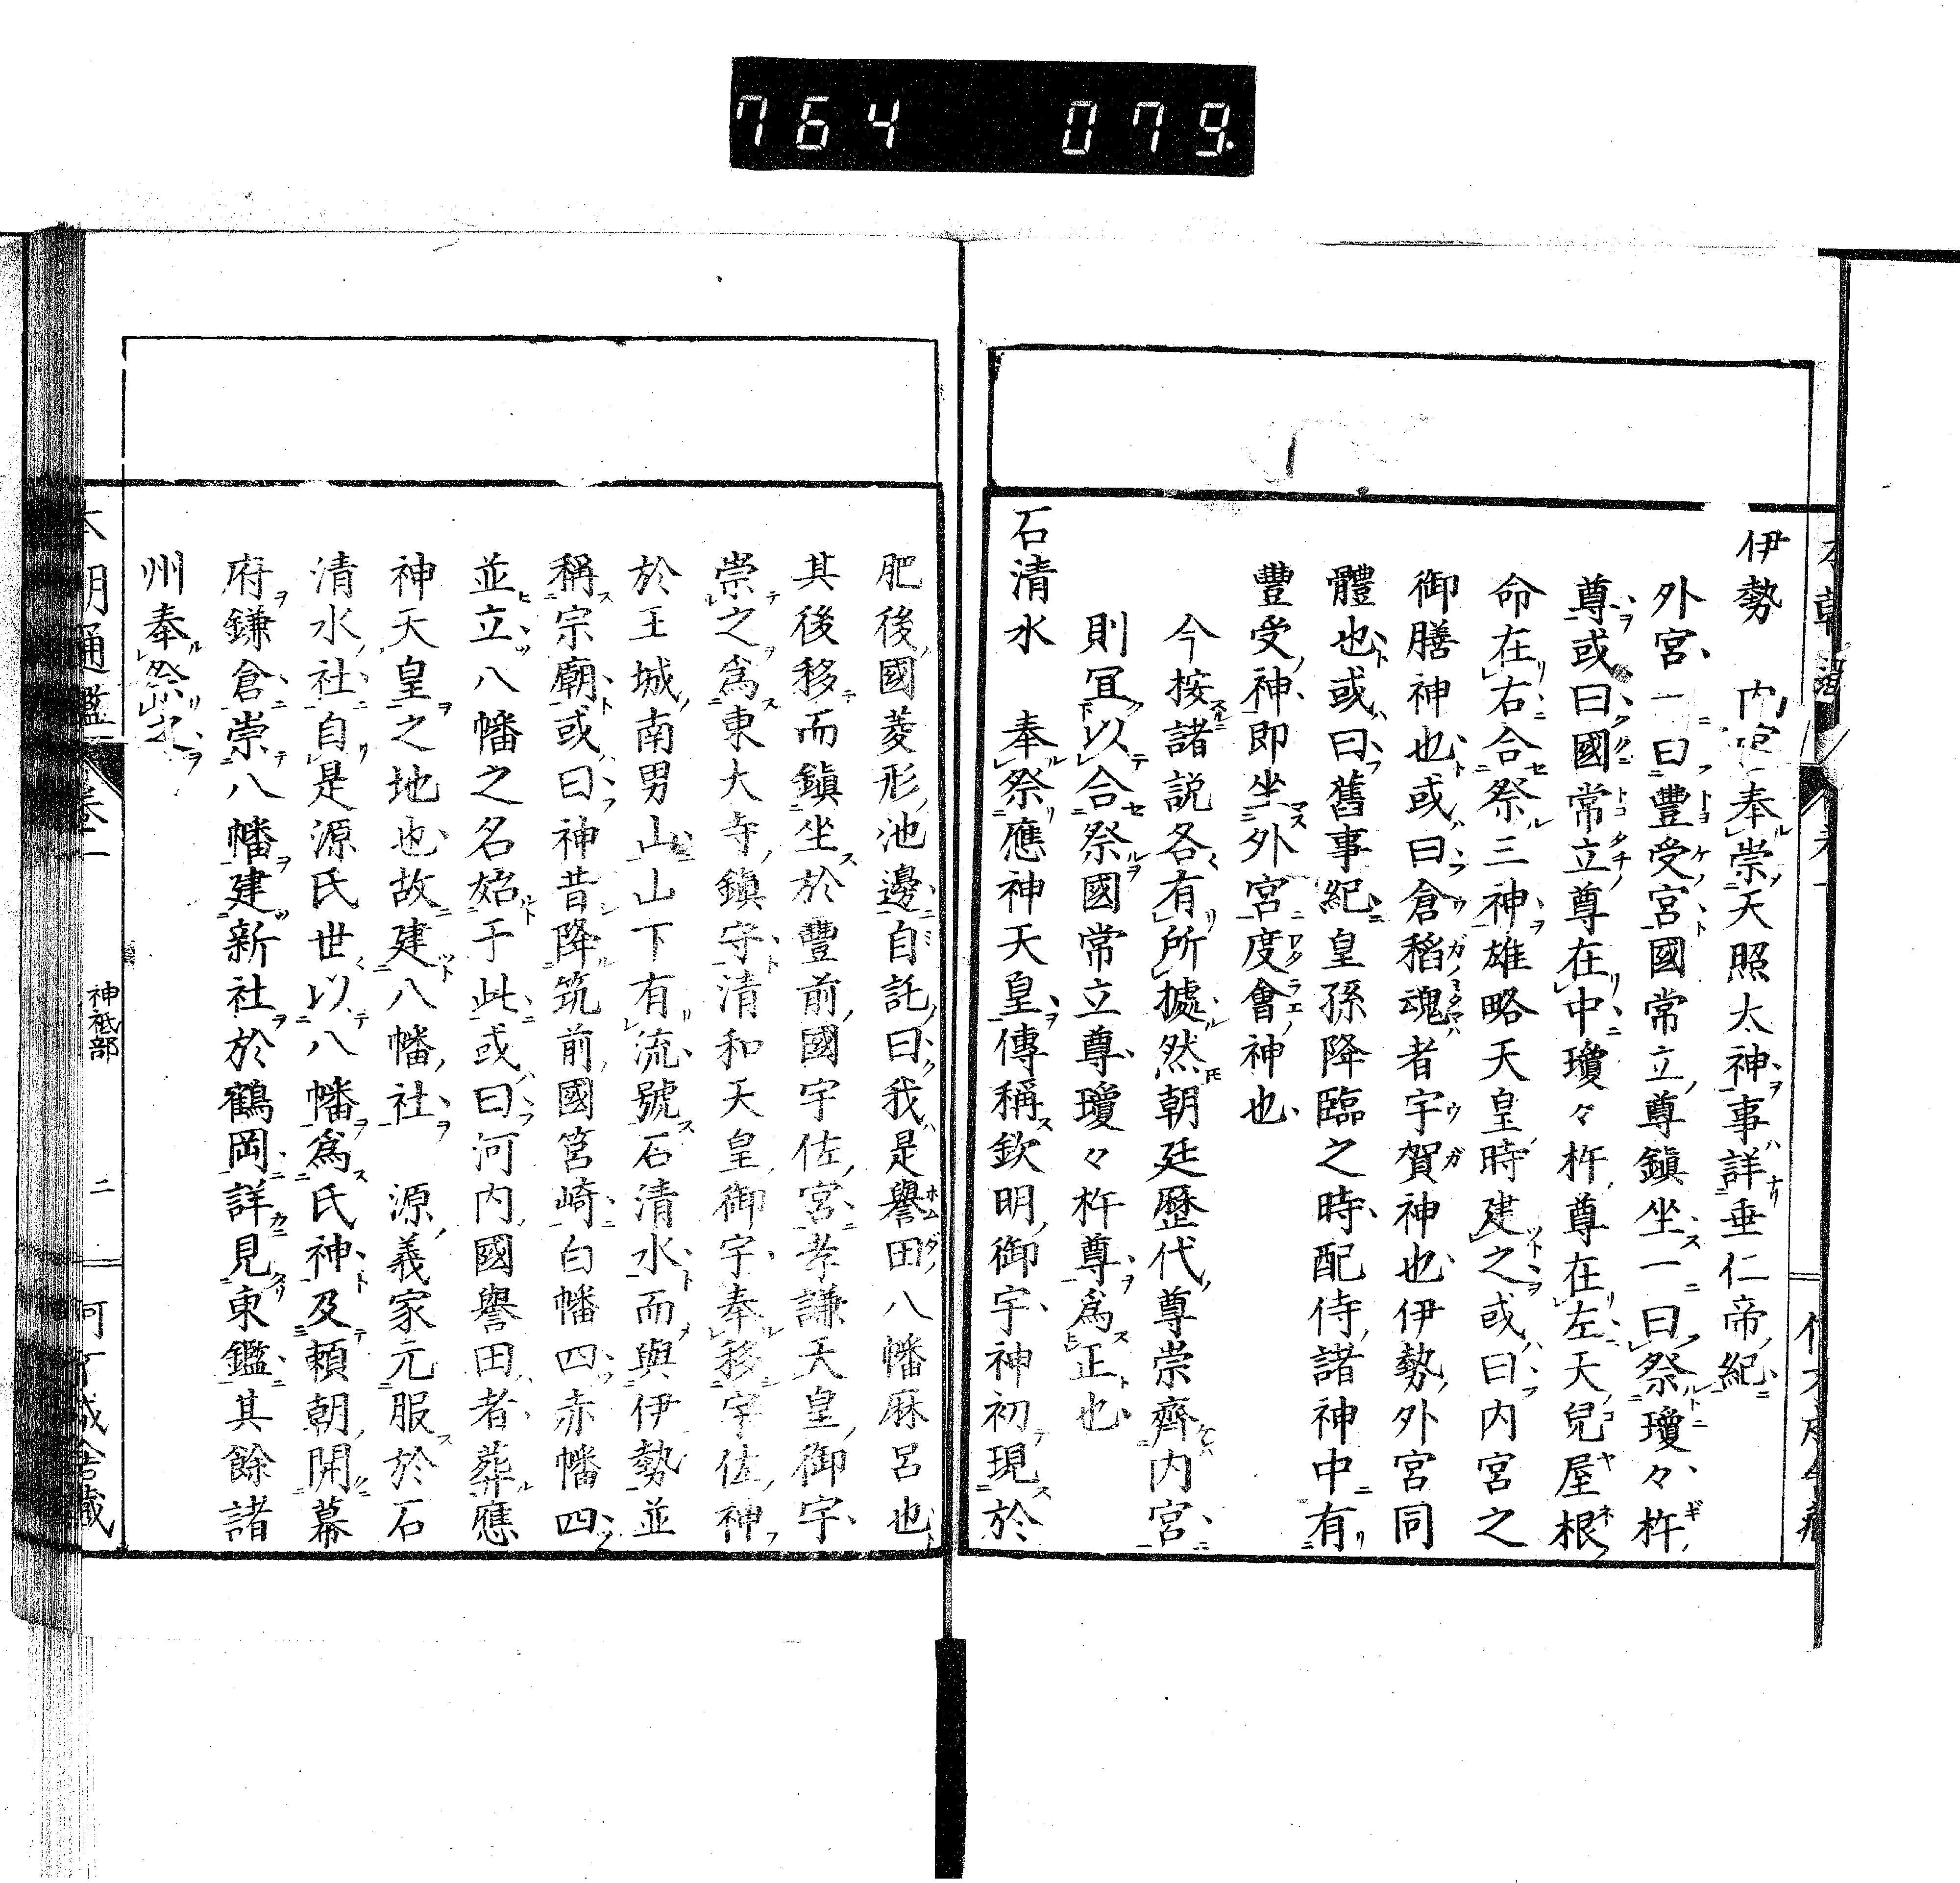 764 079
伊勢 内宮奉崇天照太神事詳垂仁帝紀
外宮一曰豐受宮國常立尊鎭坐一曰祭瓊々杵
尊或曰國常立尊在中瓊々杵尊在左天兒屋根
命在右合祭三神雄略天皇時建之或曰内宮之
御膳神也或曰倉稻魂者宇賀神也伊勢外宮同
體也或曰舊事紀皇孫降臨之時配侍諸神中有
豐受神即坐外宮度會神也
今按諸説各有所據然朝廷歷代尊崇齊内宮
則冝以合祭國常立尊瓊々杵尊爲正也
石清水 奉祭應神天皇傳稱欽明御宇神初現於
肥後國菱形池邊自託曰我是譽田八幡麻呂也
其後移而鎭坐於豐前國宇佐宮孝謙天皇御宇
崇之爲東大寺鎭守清和天皇御宇奉移宇佐神
於王城南男山山下有流號石清水而與伊勢並
稱宗廟或曰神昔降筑前國筥崎白幡四赤幡四
並立八幡之名始于此或曰河内國譽田者葬應
神天皇之地也故建八幡社 源義家元服於石
清水社自是源氏世以八幡爲氏神及賴朝開幕
府鎌倉崇八幡建新社於鶴岡詳見東鑑其餘諸
州奉祭
本朝通鑑 卷一 神祇部 二